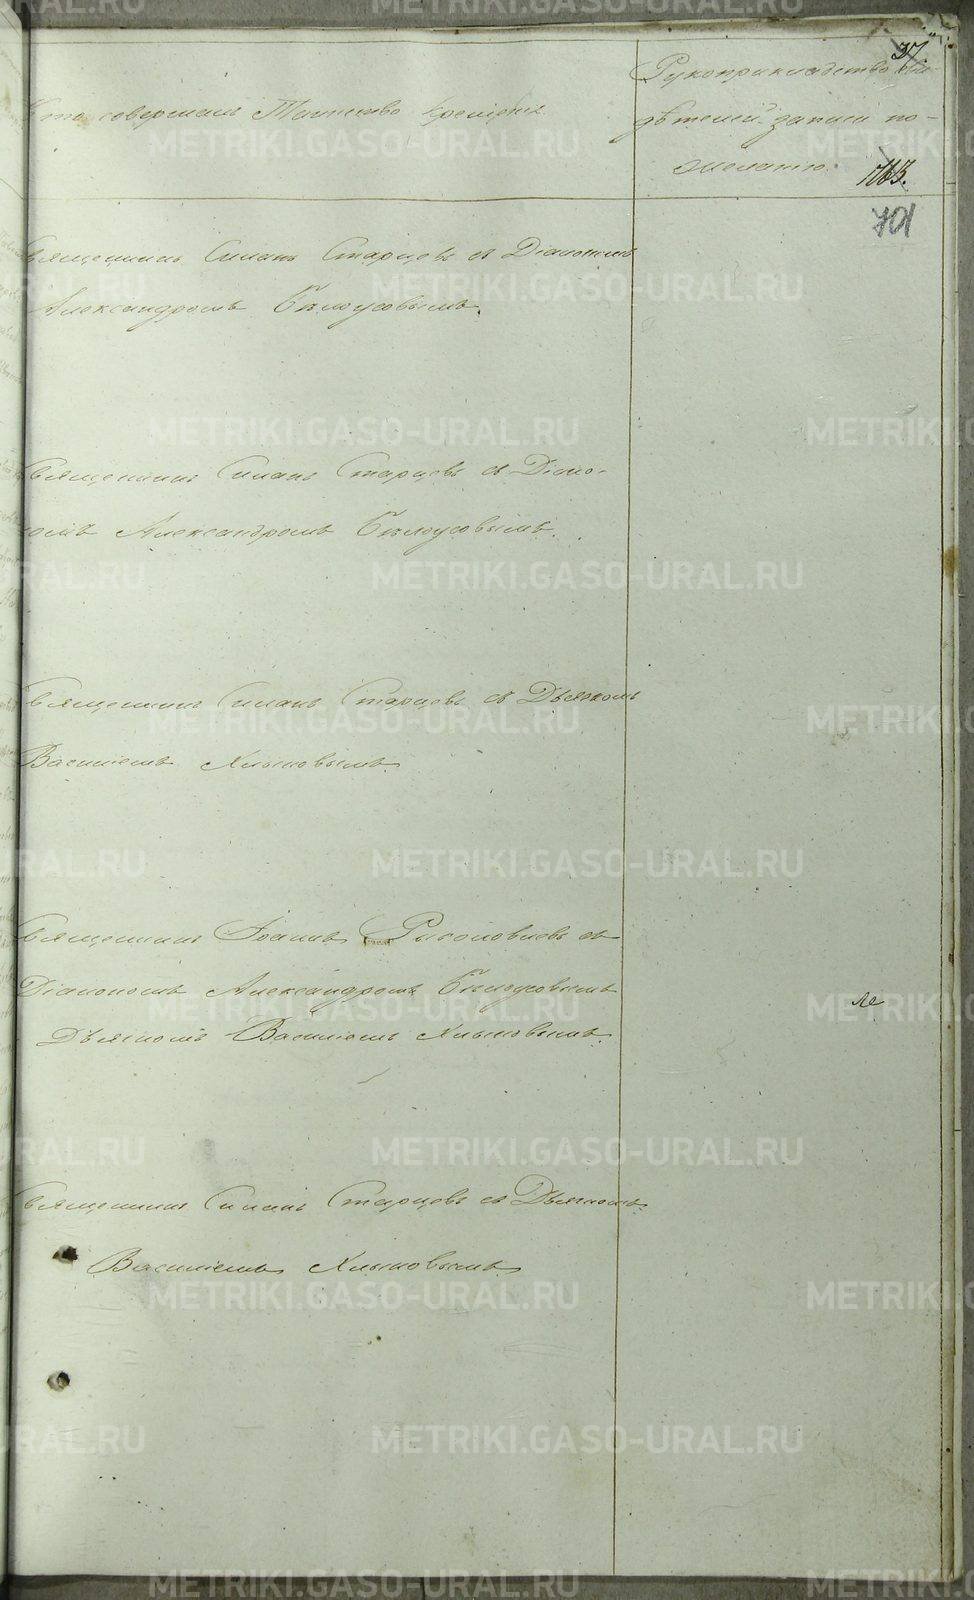 37
Кто совершалъ Таинство крещенія.
Рукоприкладство сви-
дѣтелей записи по
желанію.
763.
701
Священникъ Силанъ Старцевъ съ Діакономъ
Александромъ Бѣлоусовымъ.
Священникъ Силанъ Старцевъ съ Діако-
номъ Александромъ Бѣлоусовымъ.
Священникъ Силанъ Старцевъ съ Дьячкомъ
Василіемъ Хлыновымъ.
Священникъ Іоаннъ съ
Діакономъ Александромъ Бѣлоусовымъ
Дьячкомъ Василіемъ Хлыновымъ.
Священникъ Силанъ Старцевъ съ Дьячкомъ
Василіемъ Хлыновымъ
METRIKI.GASO-URAL.RU